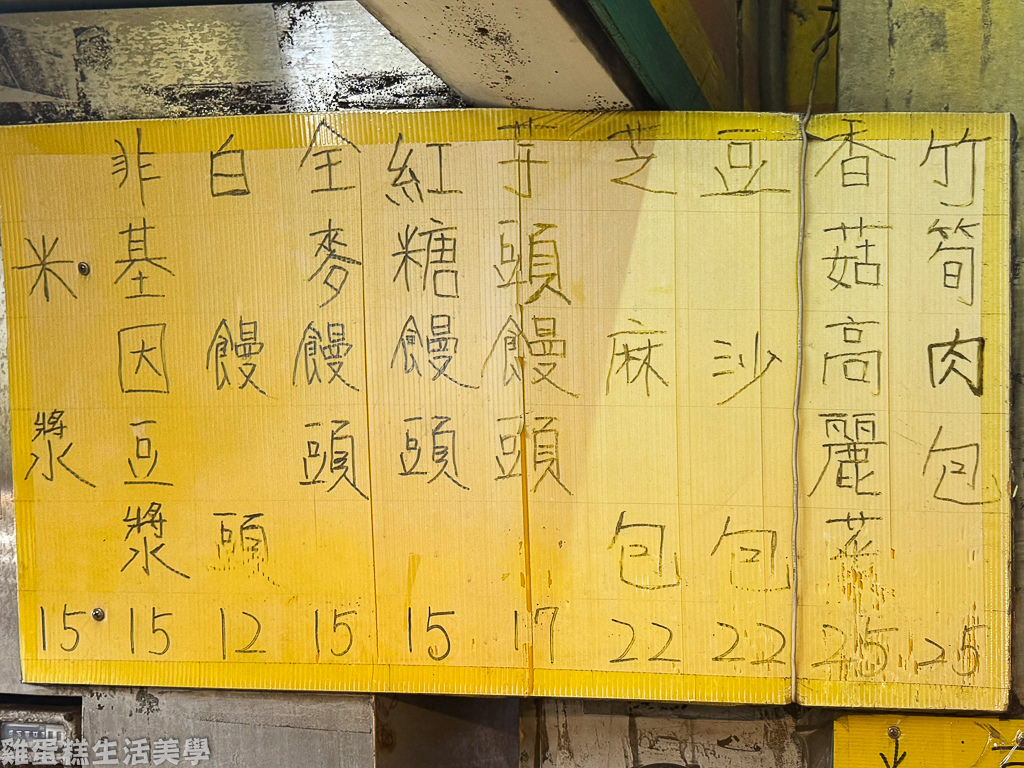 竹筍肉包 25
香菇高麗菜 25
豆沙包 22
芝麻包 22
芋頭饅頭 17
紅糖饅頭 15
全麥饅頭 15
白饅頭 12
非基因豆漿 15
米漿 15
雞蛋糕生活美學